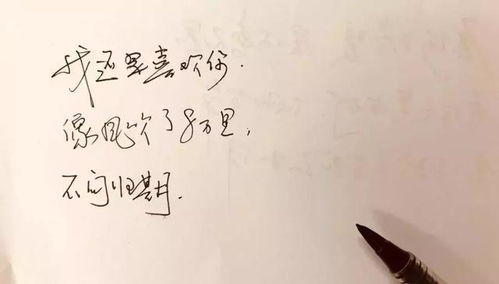 我还是喜欢你.
像风吹了8万里,
不问归期.